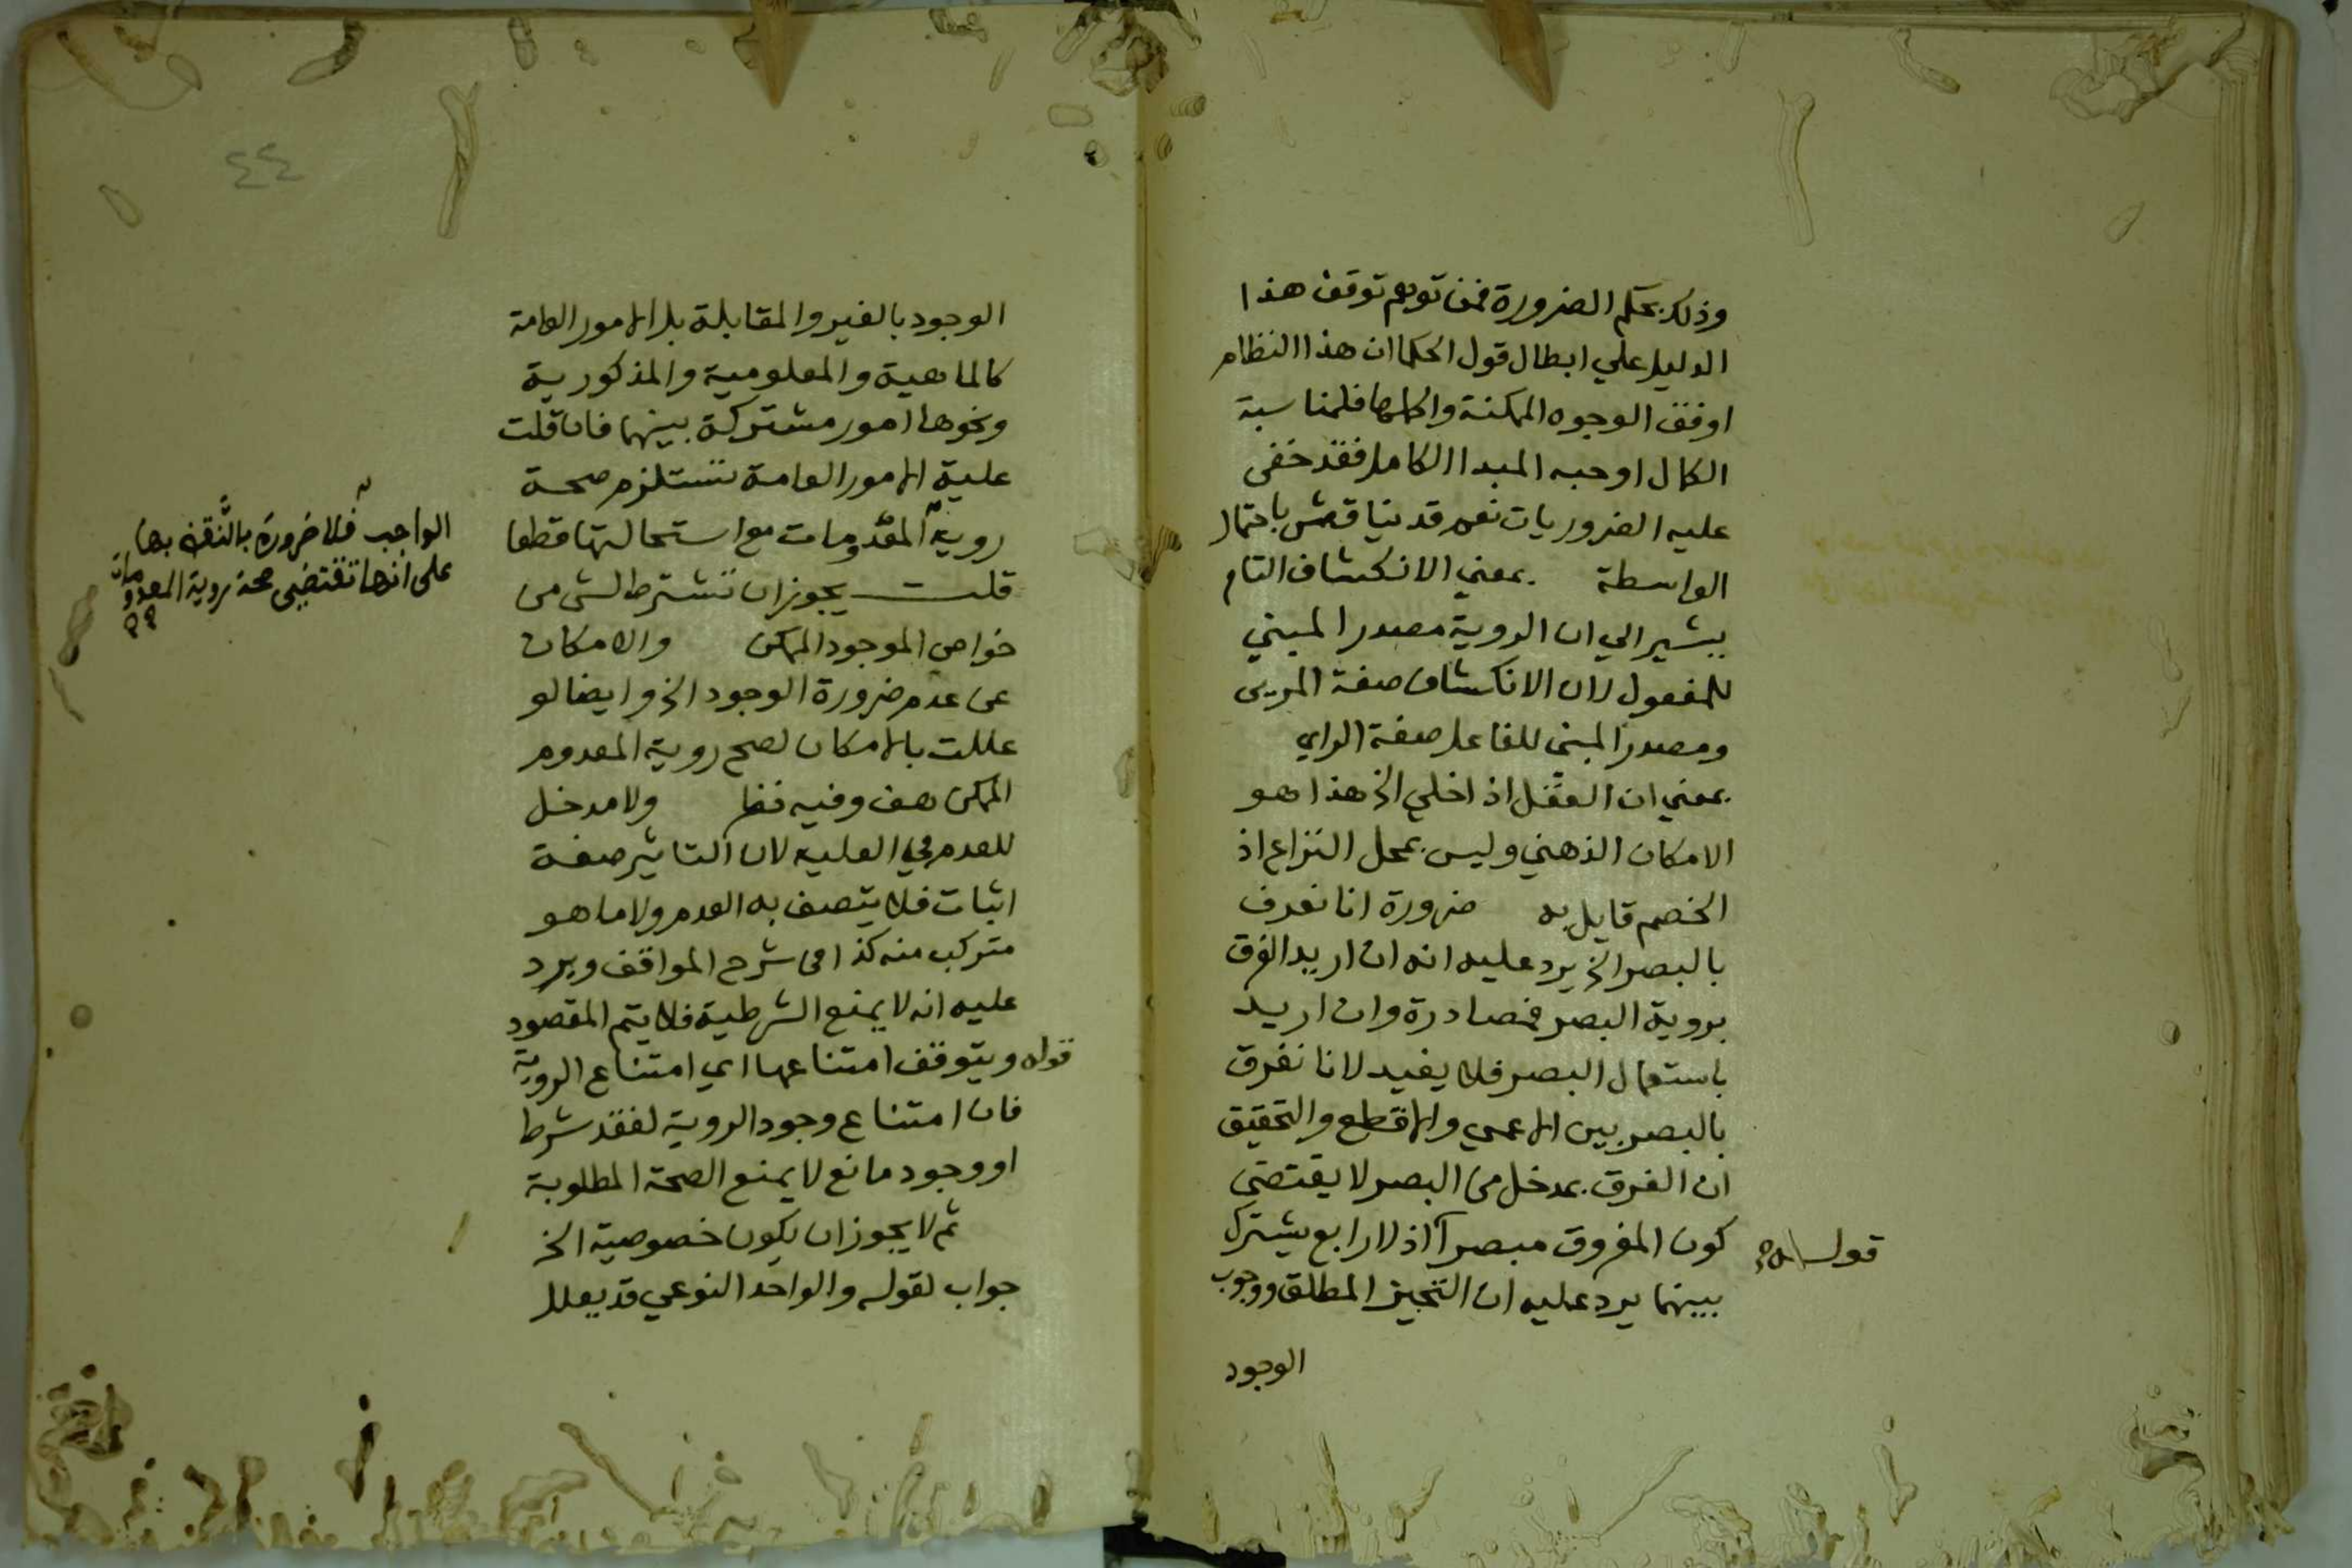 وذلك بحكم الضرورة فمن توهم توقف هذا
الدليل علي ابطال قول الحكما ان هذا النظام
اوفق الوجوه الممكنة واكملها فلمناسبة
الكمال اوجبه المبدا الكامل فقد خفى
عليه الضروريات نعم قد يناقش باحتمال
الواسطة بمعني الانكشاف التام
يشير الي ان الروية مصدر المبني
للمفعول لان الانكشاف صفة المريى
ومصدر المبنى للفاعل صفة الراي
بمعني ان العقل اذا خلي الخ هذا هو
الامكان الذهني وليس بمحل النزاع اذ
الخصم قايل به ضرورة انا نعرف
بالبصر الخ يرد عليه انه ان اريد الفرق
بروية البصر فمصادرة وان اريد
باستعمال البصر فلا يفيد لانا نفرق
بالبصر بين الاعمي والاقطع والتحقيق
ان الفرق بمدخل من البصر لا يقتضي
كون المفروق مبصرا اذ لا رابع يشترك
قوله
بينهما يرد عليه ان التحيز المطلق ووجوب
الوجود
٤٤
الوجود بالغير والمقابلة بل الامور العامة
كالماهية والمعلومية والمذكورية
ونحوها امور مشتركة بينهما فان قلت
علية الامور العامة تستلزم صحة
روية المعدومات مع استحالتها قطعا
قلت يجوز ان تشترط لشى من
خواص الموجود الممكن والامكان
عن عدم ضرورة الوجود الخ وايضا لو
عللت بالامكان لصح روية المعدوم
الممكن هف وفيه نظر ولا مدخل
للعدم في العليه لان التاثير صفة
اثبات فلا يتصف به العدم ولا ما هو
متركب منه كذا في شرح المواقف ويرد
عليه انه لا يمنع الشرطية فلا يتم المقصود
قوله ويتوقف امتناعها اي امتناع الروية
فان امتناع وجود الروية لفقد شرط
او وجود مانع لا يمنع الصحة المطلوبة
ثم لا يجوز ان يكون خصوصية الخ
جواب لقوله والواحد النوعي قد يعلل
الواجب فلا ضرورة بالنقض بها
على انها تقتضي صحة روية المعدومات